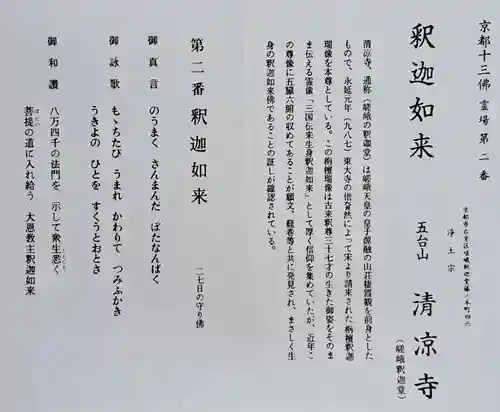 京都十三佛霊場第二番
釈迦如来
京都市右京区嵯峨釈迦堂藤ノ木町四六
浄土宗
五台山 清凉寺
(嵯峨釈迦堂)
清凉寺、通称(嵯峨の釈迦堂)は嵯峨天皇の皇子源融の山荘棲霞観を前身とした
もので、永延元年(九八七)東大寺の僧奝然によって宋より請来された栴檀釈迦
瑞像を本尊としている。この栴檀瑞像は古来釈尊三十七才の生きた御姿をそのま
ま伝える霊像「三国伝来生身釈迦如来」として厚く信仰を集めていたが、近年こ
の尊像に五臓六腑の収めてあることが願文、経巻等と共に発見され、まさしく生
身の釈迦如来佛であることの証しが確認されている。
第二番釈迦如来
二七日の守り佛
御真言 のうまく さんまんだ ぼたなんばく
御詠歌 もゝたび うまれ かわりて つみふかき
うきよの ひとを すくうとおとさ
御和讃 八万四千の法門を 示して衆生悉く
菩提の道に入れ給う 大恩教主釈迦如来